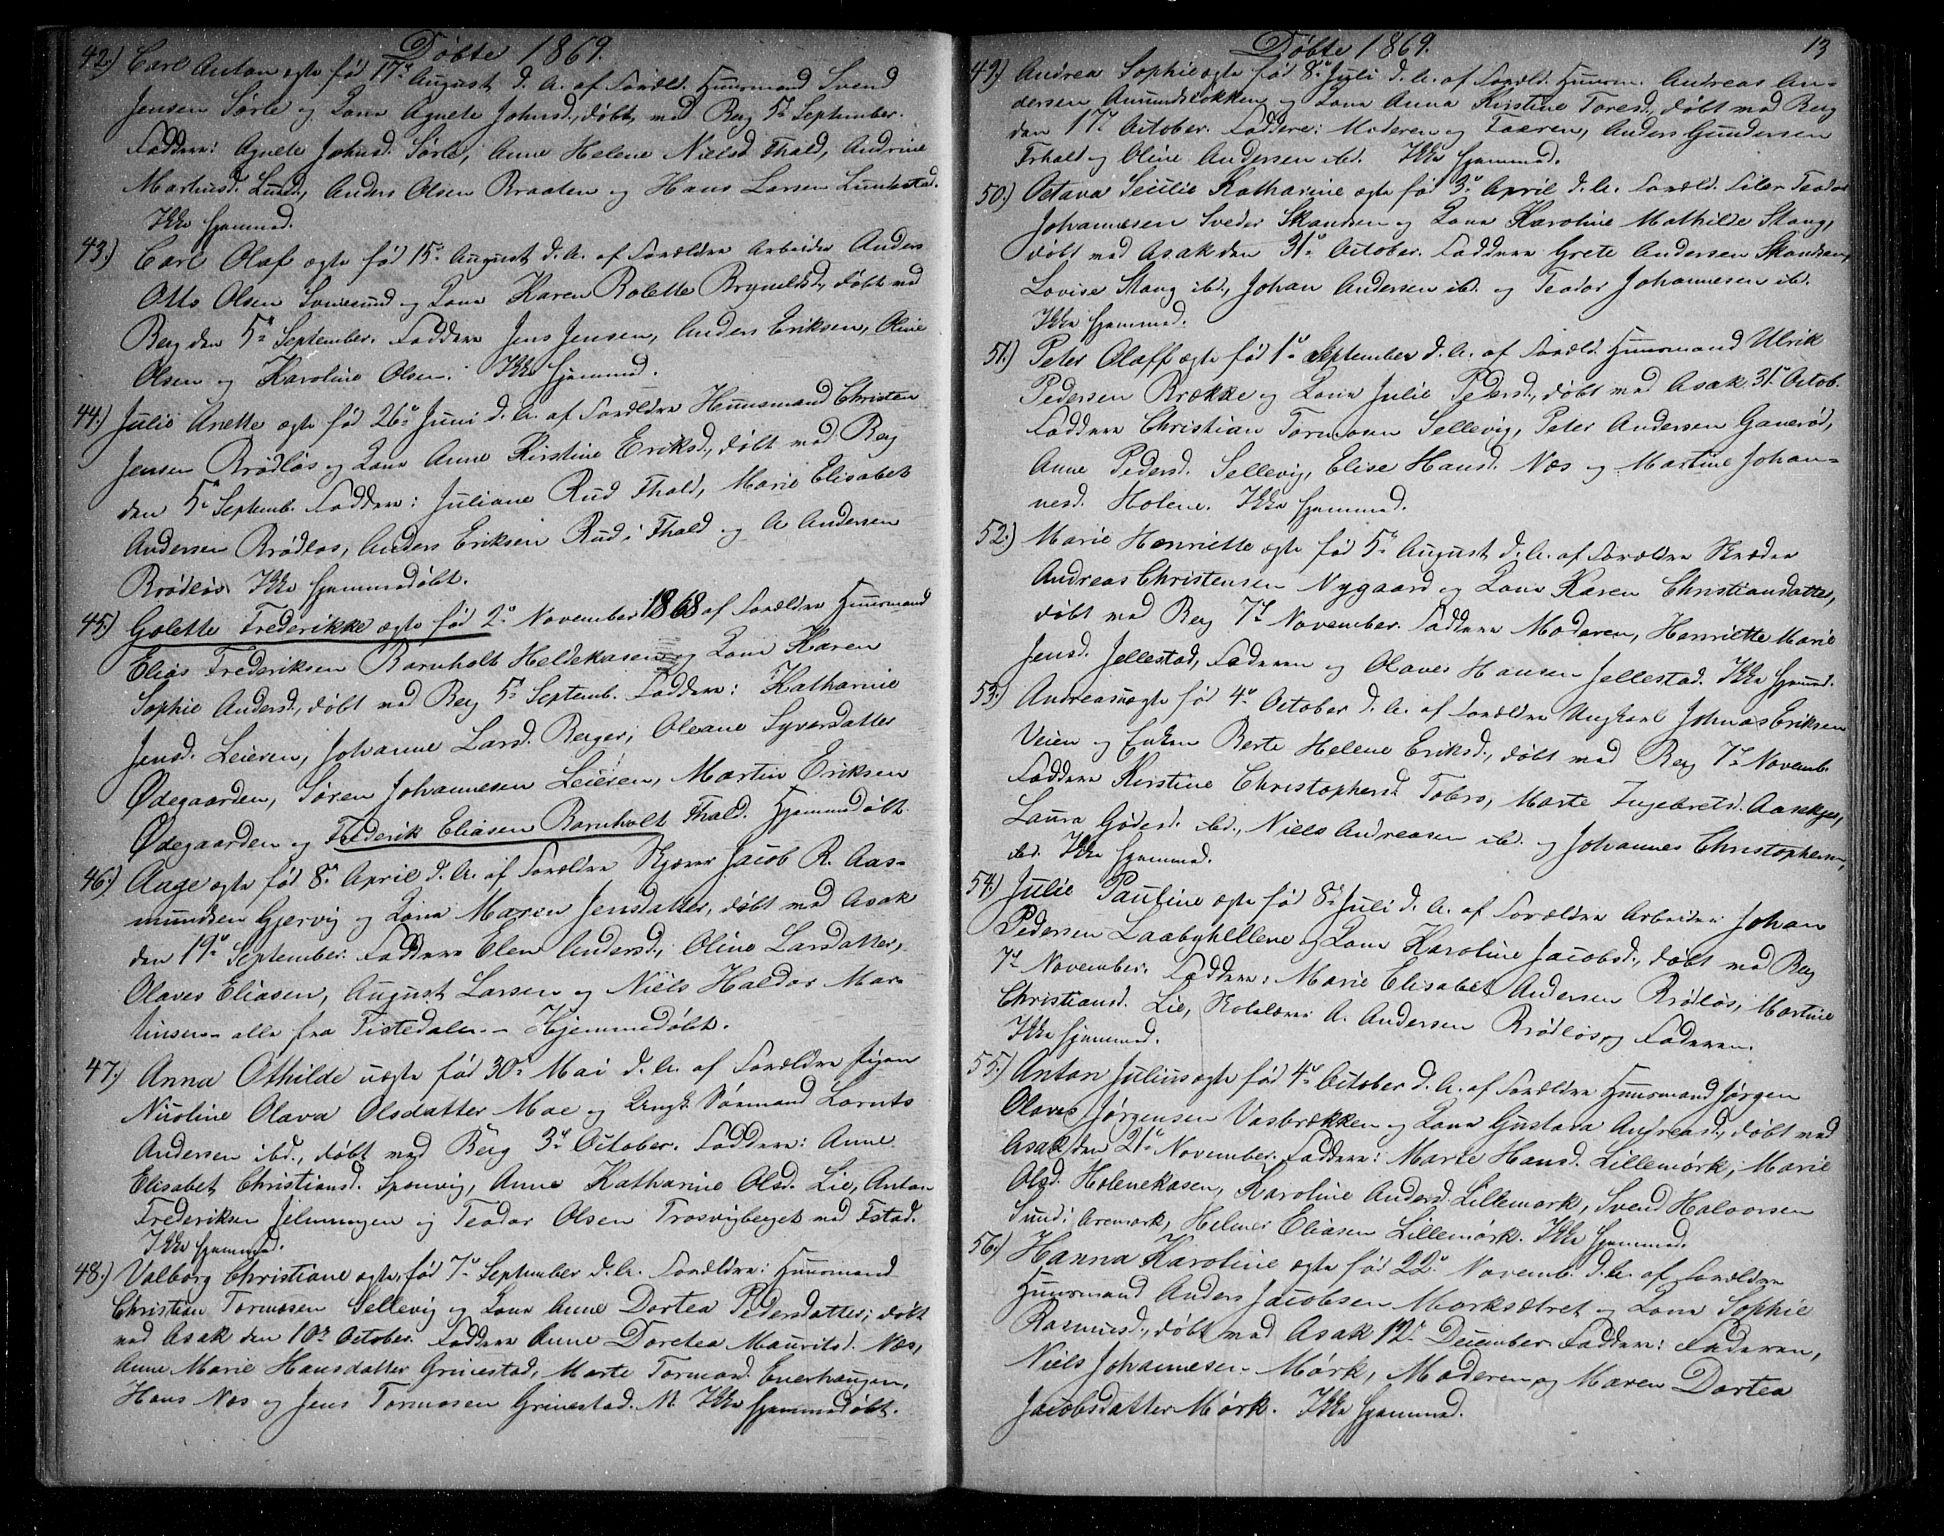 Døbte 1869.
42.) Carl Anton ægte fød 17de August d. A. af Foræld. Huusmand Svend
Jensen Sørli og Kone Agnete Johnsd., døbt ved Berg 5te September.
Faddere: Agnete Johnsd. Sørli, Anne Helene Nielsd. Fhald, Andrine
Martinsd. Lund, Anders Olsen Braaten og Hans Larsen Lundestad.
Ikke hjemmed.
43.) Carl Olaf ægte fød 15de August d. A. af Forældre Arbeider Anders
Otto Olsen og Kone Karen Rolette Brynildsd., døbt ved
Berg den 5te September. Faddere Jens Jensen, Anders Eriksen, Oline
Olsen og Karoline Olsen. Ikke hjemmed.
44.) Julie Anette ægte fød 26de Juni d. A. af Forældre Huusmand Christen
Jensen Brødløs og Kone Anne Kirstine Eriksd., døbt ved Berg
den 5te Septemb. Faddere: Juliane Rud Fhald, Marie Elisabet
Andersen Brødløs, Anders Eriksen Rud i Fhald og A. Andersen
Brødløs. Ikke hjemmedøbt.
45.) Golette Frederikke ægte fød 2den November 1868 af Forældre Huusmand
Elias Frederiksen Bornholt Heldekasen og Kone Karen
Sophie Andersd., døbt ved Berg 5te Septemb. Faddere: Katharine
Jensd. Leieren, Johanne Larsd. Berger, Oleane Syversdatter
Ødegaarden, Søren Johannesen Leieren, Martin Eriksen
Ødegaarden og Frederik Eliasen Bornholt Fhald. Hjemmedøbt
46.) Aage ægte fød 8de April d. A. af Forældre Skjærer Jacob R. Aas-
mundsen Gjervig og Kone Maren Jensdatter, døbt ved Asak
den 19de September. Faddere Elen Andersd., Oline Larsdatter,
Olaves Eliasen, August Larsen og Niels Haldor Mar-
tinsen - alle fra Tistedalen. - Hjemmedøbt.
47.) Anna Othilde uægte fød 30te Mai d. A. af Forældre Pigen
Nicoline Olava Olsdatter Moe og Ungk. Sømand Lornts
Andersen ibd., døbt ved Berg 3die October. Faddere: Anne
Elisabet Christiansd. Sponvig, Anne Katharine Olsd. Lie, Anton
Frederiksen Jelmungen og Teodor Olsen Trosvigberget ved Fstad.
Ikke hjemmed.
48.) Valborg Christiane ægte, fød 7de September d. A. Forældre: Huusmand
Christian Tormosen Sellevig og Kone Anne Dortea Pedersdatter, døbt
ved Asak den 10de October. Faddere Anne Doretea Mauritsd. Næs,
Anne Marie Hansdatter Grinestad, Marte Tormosd. Enerhaugen,
Hans Næs og Jens Tormosen Grimestad. M. Ikke hjemmedøbt.
Døbte 1869. 13
49.) Andrea Sophie ægte fød 8de Juli d. A. af Foræld. Huusm. Andreas An-
dersen Amundsløkken og Kone Anna Kirstine Toresd., døbt ved Berg
den 17de October. Faddere: Moderen og Faderen, Anders Gundersen
Frhald og Oline Andersen ibd. Ikke hjemmed.
50.) Octava Cecilie Katharine ægte fød 3die April d. A. Foræld. Filer Teodor
Johannesen Sveder Skandsen og Kone Karoline Mathilde Stang,
døbt ved Asak den 31te October. Faddere Grete Andersen Skandsen,
Lovise Stang ibd., Johan Andersen ibd. og Teodor Johannesen ibd.
Ikke hjemmed.
51.) Peter Olaff ægte fød 1ste September d. A. af Foræld. Huusmand Ulrik
Pedersen Brække og Kone Julie Pedersd., døbt ved Asak 31te Octob.
Faddere Christian Tormosen Sellevig, Peter Andersen Ganerød,
Anne Pedersd. Sellevig, Elise Hansd. Næs og Martine Johan-
nesd. Holene. Ikke hjemmed.
52.) Marie Henriette ægte fød 5te August d. A. af Forældre Skræder
Andreas Christensen Nygaard og Kone Karen Christiansdatter,
døbt ved Berg 7de November. Faddere Moderen, Henriette Marie
Jensd. Jellestad, Faderen og Olaves Hansen Jellestad. Ikke hjemmed.
53.) Andreas uægte fød 4de October d. A. af Forældre Ungkarl Johnas Eriksen
Veien og Enken Berte Helene Eriksd., døbt ved Berg 7de Novemb.
Faddere Kirstine Christophersd. Tobro, Marte Ingebretsd. Aaseskjær,
Laura Godesd. ibd., Niels Andreasen ibd. og Johannes Christophersen
ibd. Ikke hjemmed.
54.) Julie Pauline ægte fød 8de Juli d. A. af Forældre Arbeider Johan
Pedersen Laabyhellene og Kone Karoline Jacobsd., døbt ved Berg
7de November. Faddere: Marie Elisabet Andersen Brødløs, Martine
Christiansd. Lie, Skolelærer A. Andersen Brødløs og Faderen.
Ikke hjemmed.
55.) Anton Julius ægte fød 4de October d. A. af Forældre Huusmand Jørgen
Olaves Jørgensen Vasbrækken og Kone Gustava Andreasd., døbt ved
Asak den 21de November. Faddere: Marte Hansd. Lillemørk, Marie
Olsd. Holenekasen, Karoline Andersd. Lillemørk, Svend Halvorsen
Sund i Aremark, Helmer Eliasen Lillemørk. Ikke hjemmed.
56.) Hanna Karoline ægte fød 22de Novemb. d. A. af Forældre
Huusmand Anders Jacobsen Mørksætret og Kone Sophie
Rasmusd., døbt ved Asak 12te December. Faddere: Faderen,
Niels Johannesen Mørk, Moderen og Maren Dortea
Jacobsdatter Mørk. Ikke hjemmed.